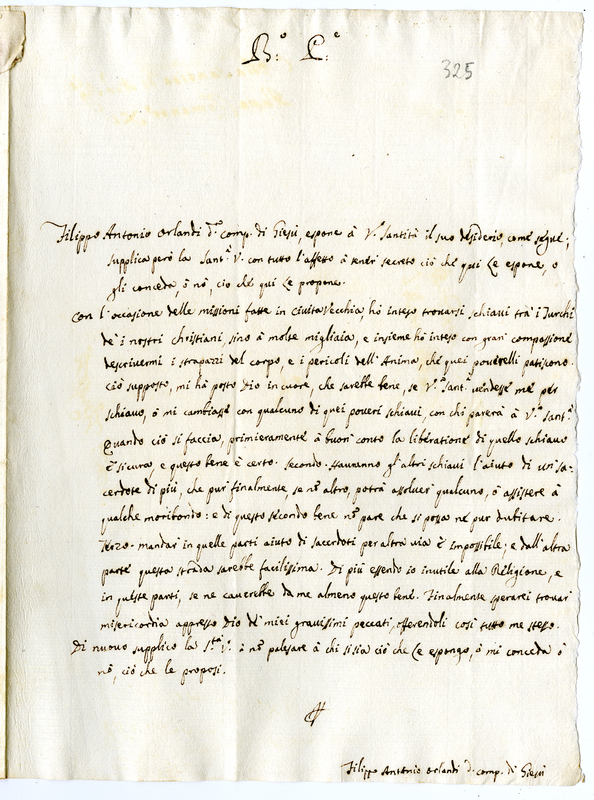 B.º P.e
325
Filippo Antonio Orlandi d.ª comp. di Giesù, espone à V.ª Santità il suo desiderio, come segue;
supplica però la Sant.ª V. con tutto l'affetto à tener secreto ciò che qui Le espone, o
gli conceda, ò nò, ciò che qui Le propone.
Con l'occasione delle missioni fatte in civitaVecchia, hò inteso trovarsi schiavi trà i Turchi
de' i nostri christiani, sino à molte migliaia, e insieme hò inteso con gran compassione
descrivermi i strapazzi del corpo, e i pericoli dell'Anima, che quei poverelli patiscono.
ciò supposto, mi hà posto Dio in cuore, che sarebbe bene, se V.ª Sant.ª vendesse me per
schiavo, ò mi cambiasse con qualcuno di quei poveri schiavi, con chi parerà à V.ª Sant.ª
Quando ciò si faccia, primieramente à buon conto la liberatione di quello schiavo
è sicura, e questo bene è certo. secondo. Hauranno gl'altri schiavi l'aiuto di un sa-
cerdote di più, che pur finalmente, se nõ altro, potrà assolver qualcuno, ò assistere à
qualche moribondo: e di questo secondo bene nõ pare che si possa ne pur dubitare.
Terzo. mandar in quelle parti aiuto di sacerdoti per altra via è impossibile; e dall'altra
parte questa strada sarebbe facilissima. Di più essendo io inutile alla Religione, e
in queste parti, se ne caverebbe da me almeno questo bene. Finalmente sperarei trovar
misericordia appresso Dio de' miei gravissimi peccati, offerendoli così tutto me stesso.
Di nuovo supplico la S.tà V. à nõ palesare à chi si sia ciò che Le espongo, ò mi conceda ò
nò, ciò che le proposi.
Filippo Antonio Orlandi d. comp. di Giesù